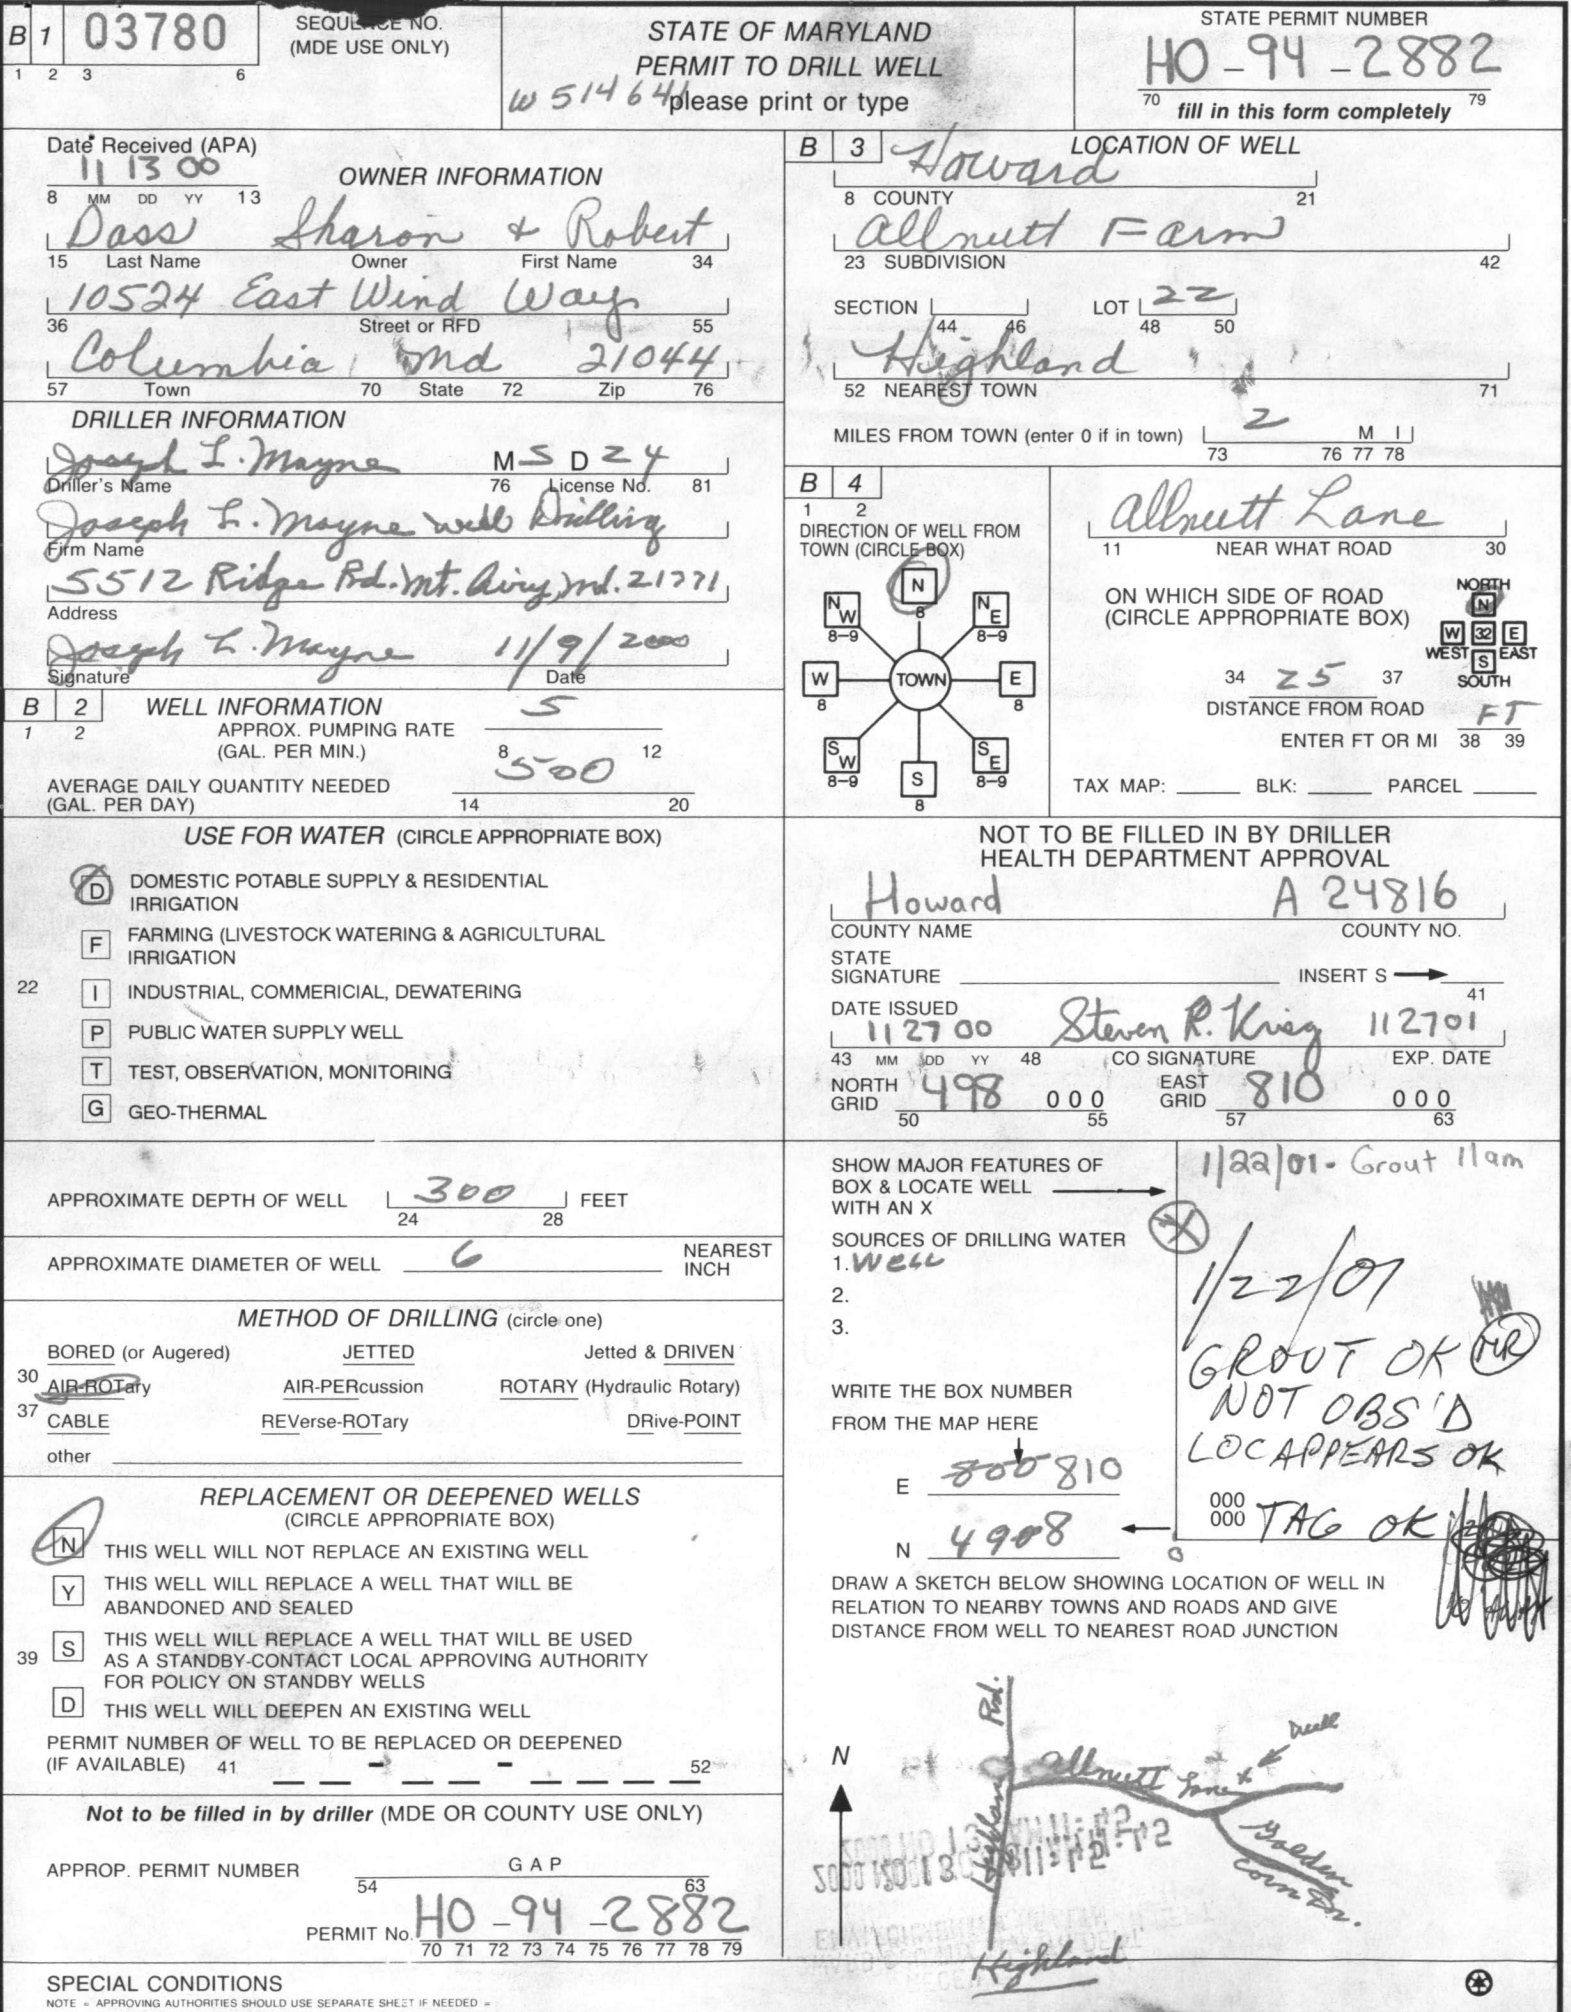 B 1 03780
1 2 3 6
SEQUENCE NO.
(MDE USE ONLY)
STATE OF MARYLAND
PERMIT TO DRILL WELL
W 514641 please print or type
STATE PERMIT NUMBER
HO-94-2882
70 79
fill in this form completely
Date Received (APA)
11 13 00
8 MM DD YY 13
OWNER INFORMATION
Dass Sharon + Robert
15 Last Name Owner First Name 34
10524 East Wind Way
36 Street or RFD 55
Columbia Md 21044
57 Town 70 State 72 Zip 76
DRILLER INFORMATION
Joseph L. Mayne M S D 24
Driller's Name 76 License No. 81
Joseph L. Mayne Well Drilling
Firm Name
5512 Ridge Rd. Mt. Airy, Md. 21771
Address
Joseph L. Mayne 11/9/2000
Signature Date
B 2 WELL INFORMATION
1 2
APPROX. PUMPING RATE
(GAL. PER MIN.) 5
8 12
AVERAGE DAILY QUANTITY NEEDED
(GAL. PER DAY) 500
14 20
USE FOR WATER (CIRCLE APPROPRIATE BOX)
D DOMESTIC POTABLE SUPPLY & RESIDENTIAL
IRRIGATION
F FARMING (LIVESTOCK WATERING & AGRICULTURAL
IRRIGATION
22 I INDUSTRIAL, COMMERICIAL, DEWATERING
P PUBLIC WATER SUPPLY WELL
T TEST, OBSERVATION, MONITORING
G GEO-THERMAL
APPROXIMATE DEPTH OF WELL 300 FEET
24 28
APPROXIMATE DIAMETER OF WELL 6 NEAREST
INCH
METHOD OF DRILLING (circle one)
BORED (or Augered) JETTED Jetted & DRIVEN
30 AIR-ROTary AIR-PERcussion ROTARY (Hydraulic Rotary)
37 CABLE REVerse-ROTary DRive-POINT
other
REPLACEMENT OR DEEPENED WELLS
(CIRCLE APPROPRIATE BOX)
N THIS WELL WILL NOT REPLACE AN EXISTING WELL
Y THIS WELL WILL REPLACE A WELL THAT WILL BE
ABANDONED AND SEALED
39 S THIS WELL WILL REPLACE A WELL THAT WILL BE USED
AS A STANDBY-CONTACT LOCAL APPROVING AUTHORITY
FOR POLICY ON STANDBY WELLS
D THIS WELL WILL DEEPEN AN EXISTING WELL
PERMIT NUMBER OF WELL TO BE REPLACED OR DEEPENED
(IF AVAILABLE) 41 - - 52
Not to be filled in by driller (MDE OR COUNTY USE ONLY)
APPROP. PERMIT NUMBER G A P
54 63
PERMIT No. HO-94-2882
70 71 72 73 74 75 76 77 78 79
SPECIAL CONDITIONS
NOTE = APPROVING AUTHORITIES SHOULD USE SEPARATE SHEET IF NEEDED =
B 3 LOCATION OF WELL
Howard
8 COUNTY 21
Allnutt Farm
23 SUBDIVISION 42
SECTION LOT 22
44 46 48 50
Highland
52 NEAREST TOWN 71
MILES FROM TOWN (enter 0 if in town) 2 M I
73 76 77 78
B 4
1 2
DIRECTION OF WELL FROM
TOWN (CIRCLE BOX)
N
8
NW NE
8-9 8-9
W TOWN E
8 8
SW SE
8-9 8-9
S
8
Allnutt Lane
11 NEAR WHAT ROAD 30
ON WHICH SIDE OF ROAD
(CIRCLE APPROPRIATE BOX)
NORTH
N
W 32 E
WEST EAST
S
SOUTH
34 25 37
DISTANCE FROM ROAD
ENTER FT OR MI FT
38 39
TAX MAP: BLK: PARCEL
NOT TO BE FILLED IN BY DRILLER
HEALTH DEPARTMENT APPROVAL
Howard A 24816
COUNTY NAME COUNTY NO.
STATE
SIGNATURE INSERT S
41
DATE ISSUED
11 27 00 Steven R. Krieg 112701
43 MM DD YY 48 CO SIGNATURE EXP. DATE
NORTH
GRID 498 000
50 55
EAST
GRID 810 000
57 63
SHOW MAJOR FEATURES OF
BOX & LOCATE WELL
WITH AN X
X
SOURCES OF DRILLING WATER
1. Well
2.
3.
WRITE THE BOX NUMBER
FROM THE MAP HERE
E 800 810
N 4908
1/22/01 - Grout 11am
1/22/01
GROUT OK MR
NOT OBS'D
LOC APPEARS OK
000
000
TAG OK
0
DRAW A SKETCH BELOW SHOWING LOCATION OF WELL IN
RELATION TO NEARBY TOWNS AND ROADS AND GIVE
DISTANCE FROM WELL TO NEAREST ROAD JUNCTION
N
Highland Rd.
Allnutt Lane x
Well
Golden
Corn Dr.
Highland